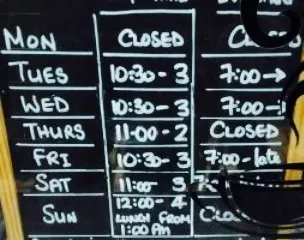 MON CLOSED
TUES 10:30 - 3 7:00 →
WED 10:30 - 3 7:00 -
THURS 11:00 - 2 CLOSED
FRI 10:30 - 3 7:00 - late
SAT 11:00 - 3
SUN 12:00 - 4
LUNCH FROM
1:00 PM